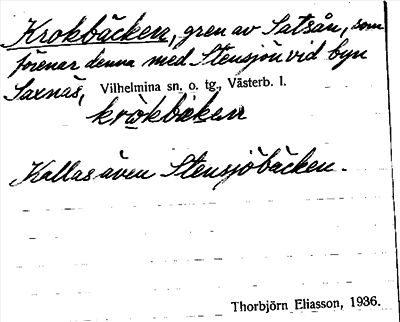 Krokbäcken, gren av Satsån, som
förenar denna med Stensjön vid byn
Saxnäs, Vilhelmina sn. o. tg., Västerb. l.
krökbäken
Kallas även Stensjöbäcken.
Thorbjörn Eliasson, 1936.